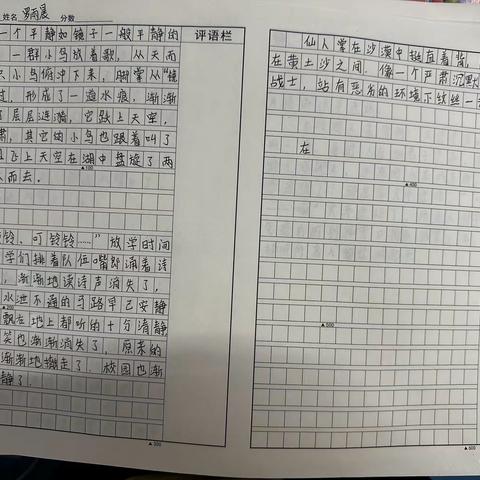 姓名 罗雨晨 分数
评语栏
一个平静如镜子一般平静的
一群小鸟放着歌，从天而
只小鸟俯冲下来，脚掌从“镜
过，形成了一道水痕，渐渐
了层层涟漪，它跃上天空，
肃，其它的小鸟也跟着叫了
且飞上天空在湖中盘旋了两
人而去。
▲100
铃、叮铃铃……”放学时间
学们排着队伍嘴即诵着诗
，渐渐地读诗声消失了，
水泄不通的弓路早已安静
▲200
飘在地上都听的十分清静
笑也渐渐消失了，原来的
渐渐地搬走了．校园也渐
静了．
▲300
仙人掌在沙漠中挺直着背，
在黄土沙之间．像一个严肃沉默
战士，站有恶劣的环境下纹丝一
在
▲400
▲500
▲600